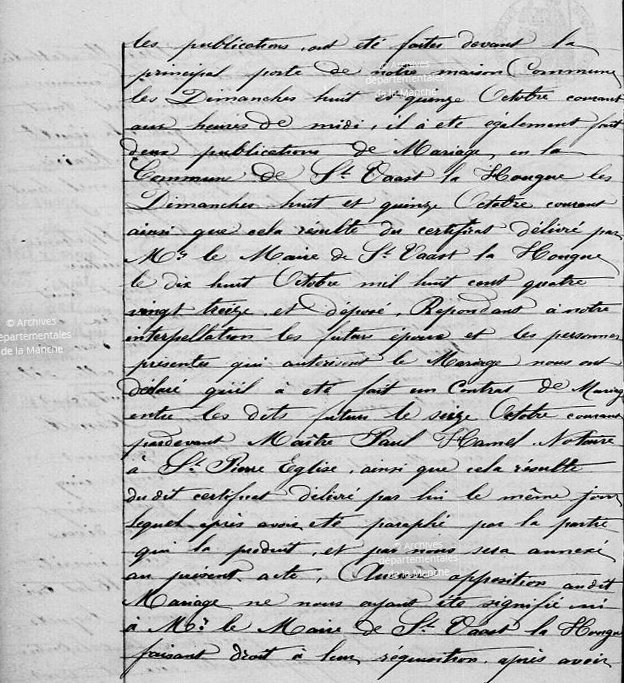 les publications ont été faites devant la
principal porte de notre maison Commune
les Dimanches huit et quinze Octobre courant
aux heures de midi, il à été également fait
deux publications de Mariage, en la
Commune de St Vaast la Hougue les
Dimanches huit et quinze Octobre courant
ainsi que cela résulte du certificat délivré par
Mr le Maire de St Vaast la Hougue
le dix huit Octobre mil huit cent quatre
vingt treize et déposé. Répondant à notre
interpellation les futurs époux et les personnes
présentes qui autorisent le Mariage nous ont
déclaré qu'il à été fait un Contrat de Mariage
entre les dits futurs le seize Octobre courant
pardevant Maître Paul Hamel Notaire
à St Pierre Eglise, ainsi que cela résulte
du dit certificat délivré par lui le même jour
lequel après avoir été paraphé par la partie
qui la produit, et par nous sera annexé
au présent acte, Aucune opposition audit
Mariage ne nous ayant été signifié ni
à Mr le Maire de St Vaast la Hougue
faisant droit à leur réquisition, après avoir
© Archives
départementales
de la Manche
départementales
de la Manche
© Archives
départementales
de la Manche